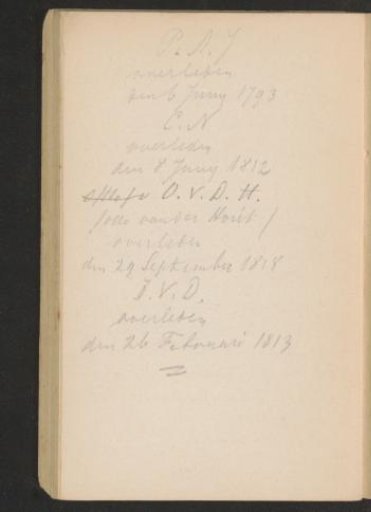 P. N. J
overleden
den 6 Juny 1793
C. N
overleden
den 8 Juny 1812
O. V. D. H.
overleden
den 29 September 1818
J. V. D.
overleden
den 26 Februari 1813